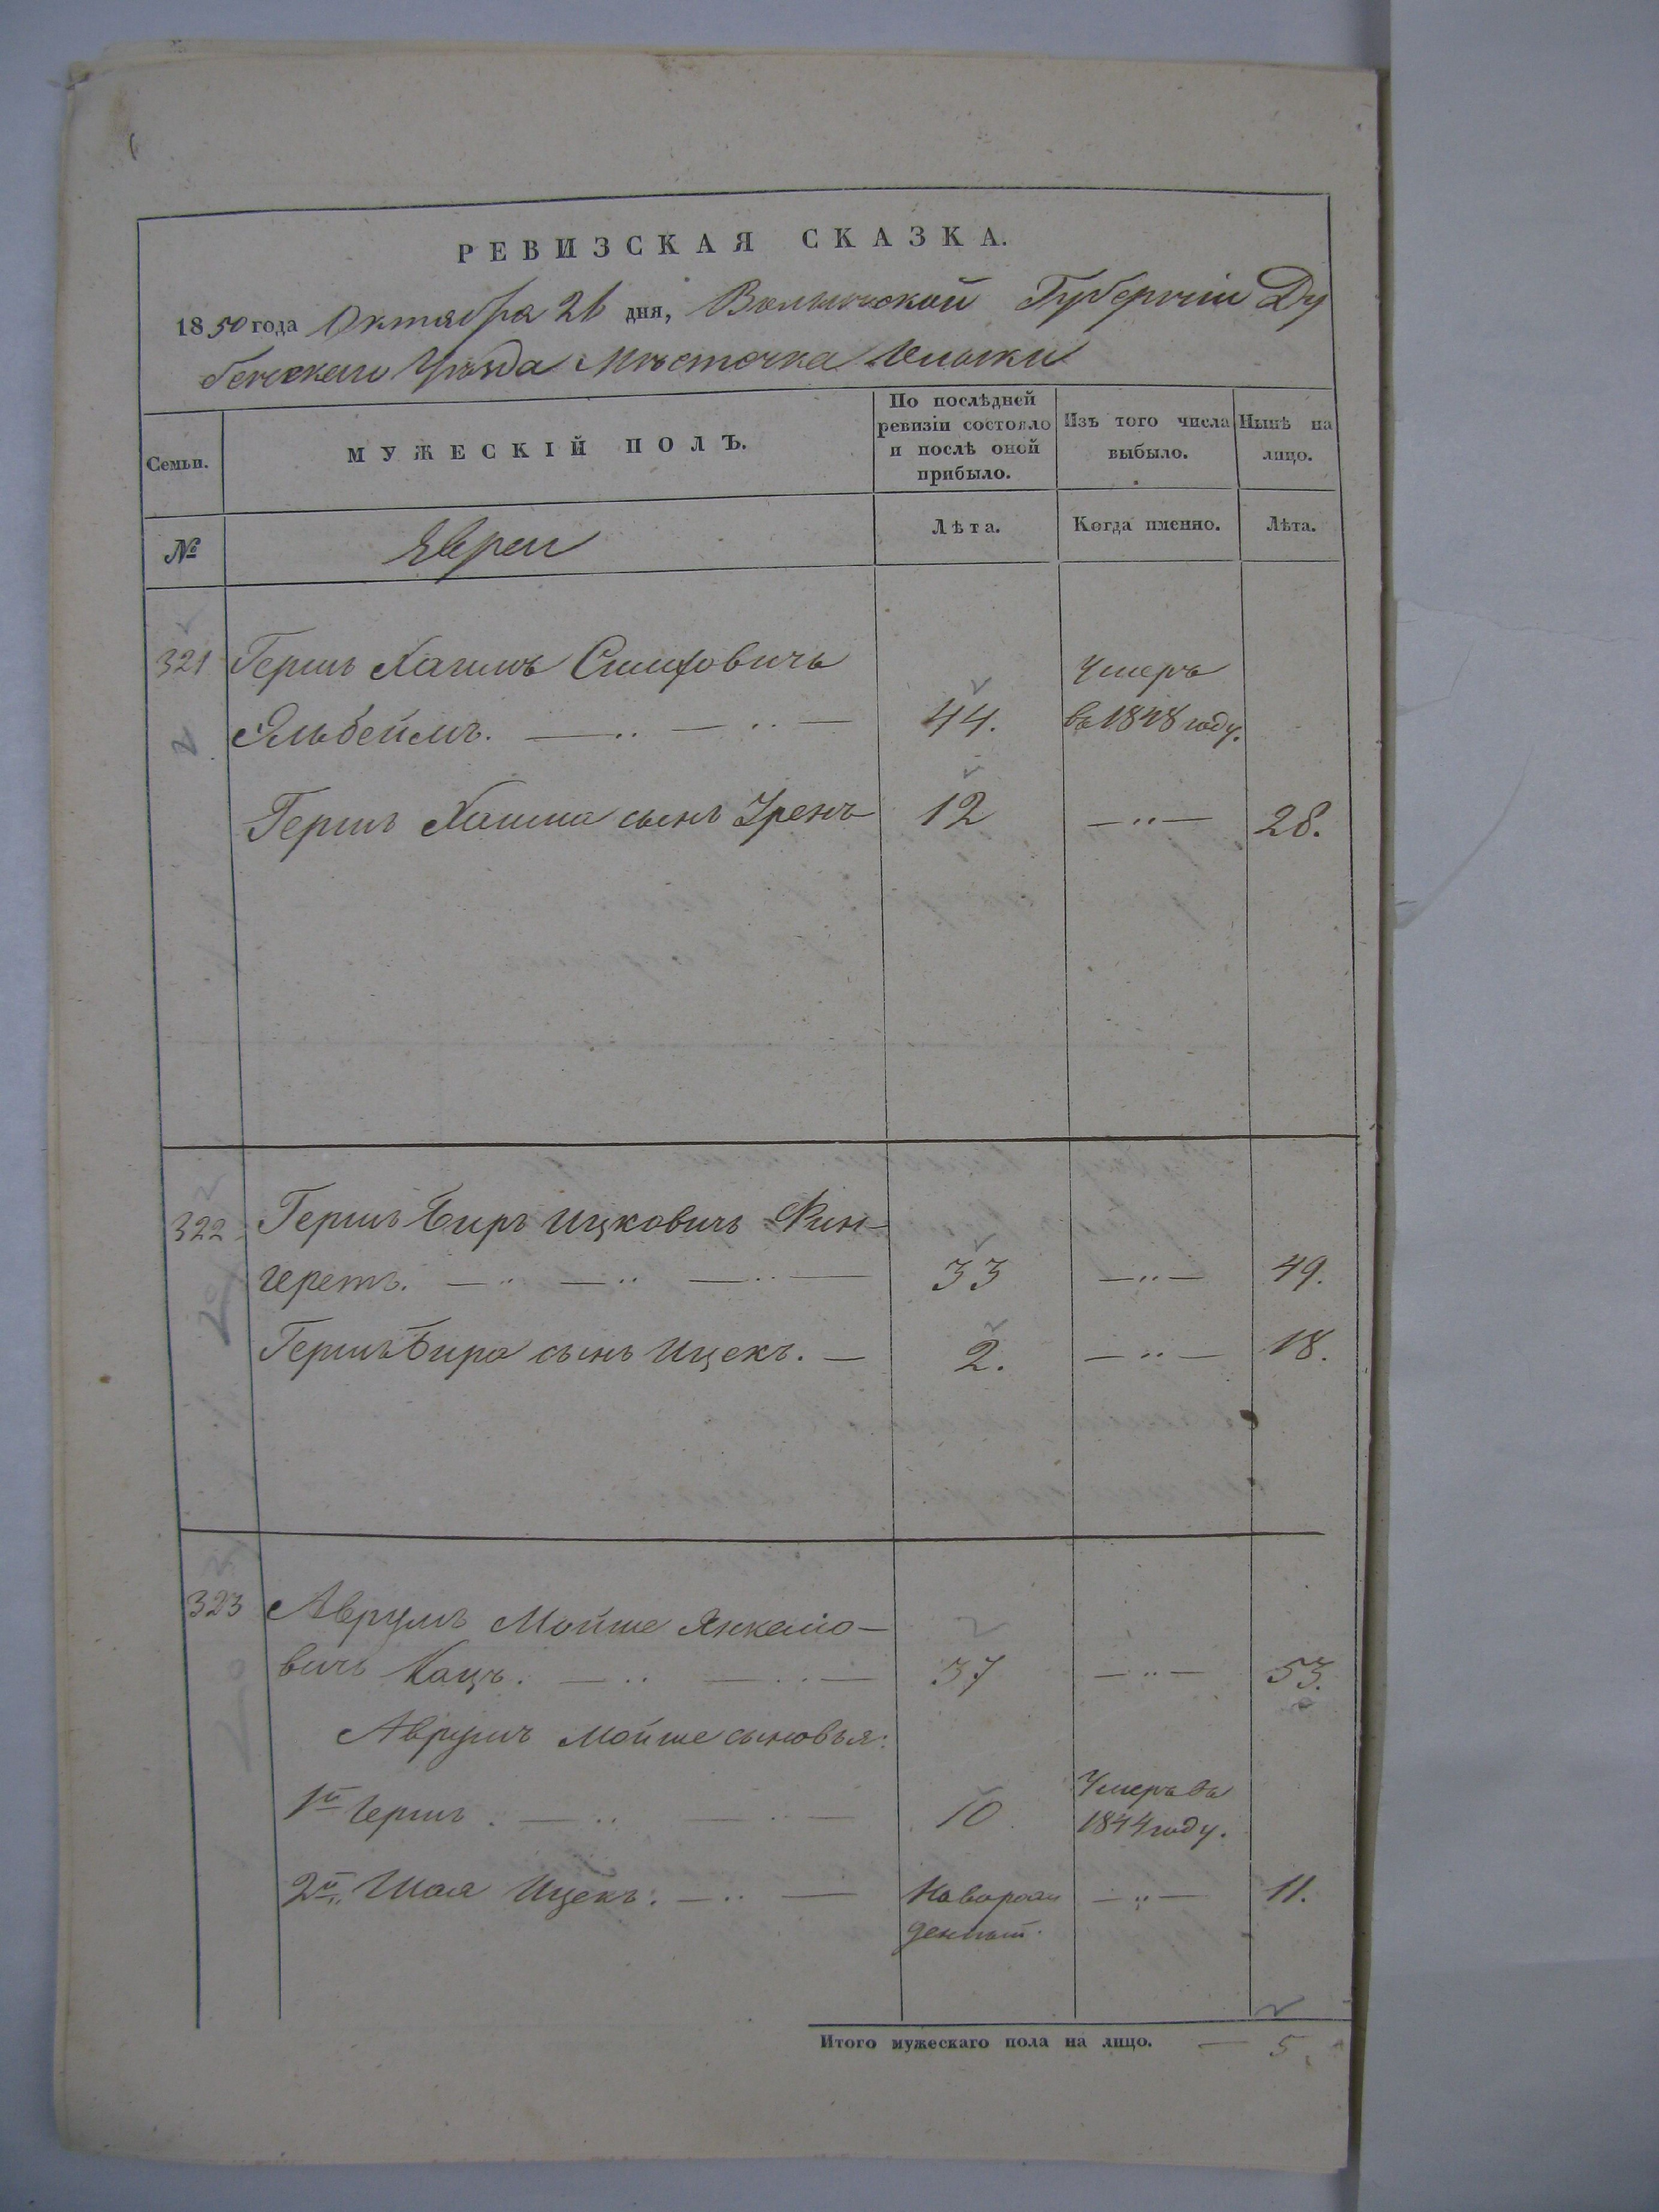 РЕВИЗСКАЯ СКАЗКА.
1850 года Октября 26 дня, Волынской Губерніи Ду
бенскаго Уѣзда Мѣстечка Олыки
Семьи.
МУЖЕСКІЙ ПОЛЪ.
По послѣдней
ревизіи состояло
и послѣ оной
прибыло.
Изъ того числа
выбыло.
Нынѣ на
лицо.
№
Евреи
Лѣта.
Когда именно.
Лѣта.
321 Гершъ Хаимъ
Умеръ
44. въ 1848 году.
Гершъ Хаима сынъ 12 —〃— 28.
322 Гершъ Беръ Ицковичъ Фин-
геретъ. —〃—〃—〃— 33 —〃— 49.
Гершъ Бера сынъ Ицекъ. — 2. —〃— 18.
323 Аврумъ Мойше Янкелio-
вичъ Кацъ. —〃—〃— 37 —〃— 53.
Аврумъ Мойше сыновья:
1й Гершъ. —〃—〃— 10 Умеръ въ
1844 году.
2й Шая Ицекъ. —〃— Новорож
денный. —〃— 11.
Итого мужескаго пола на лицо. — 5.